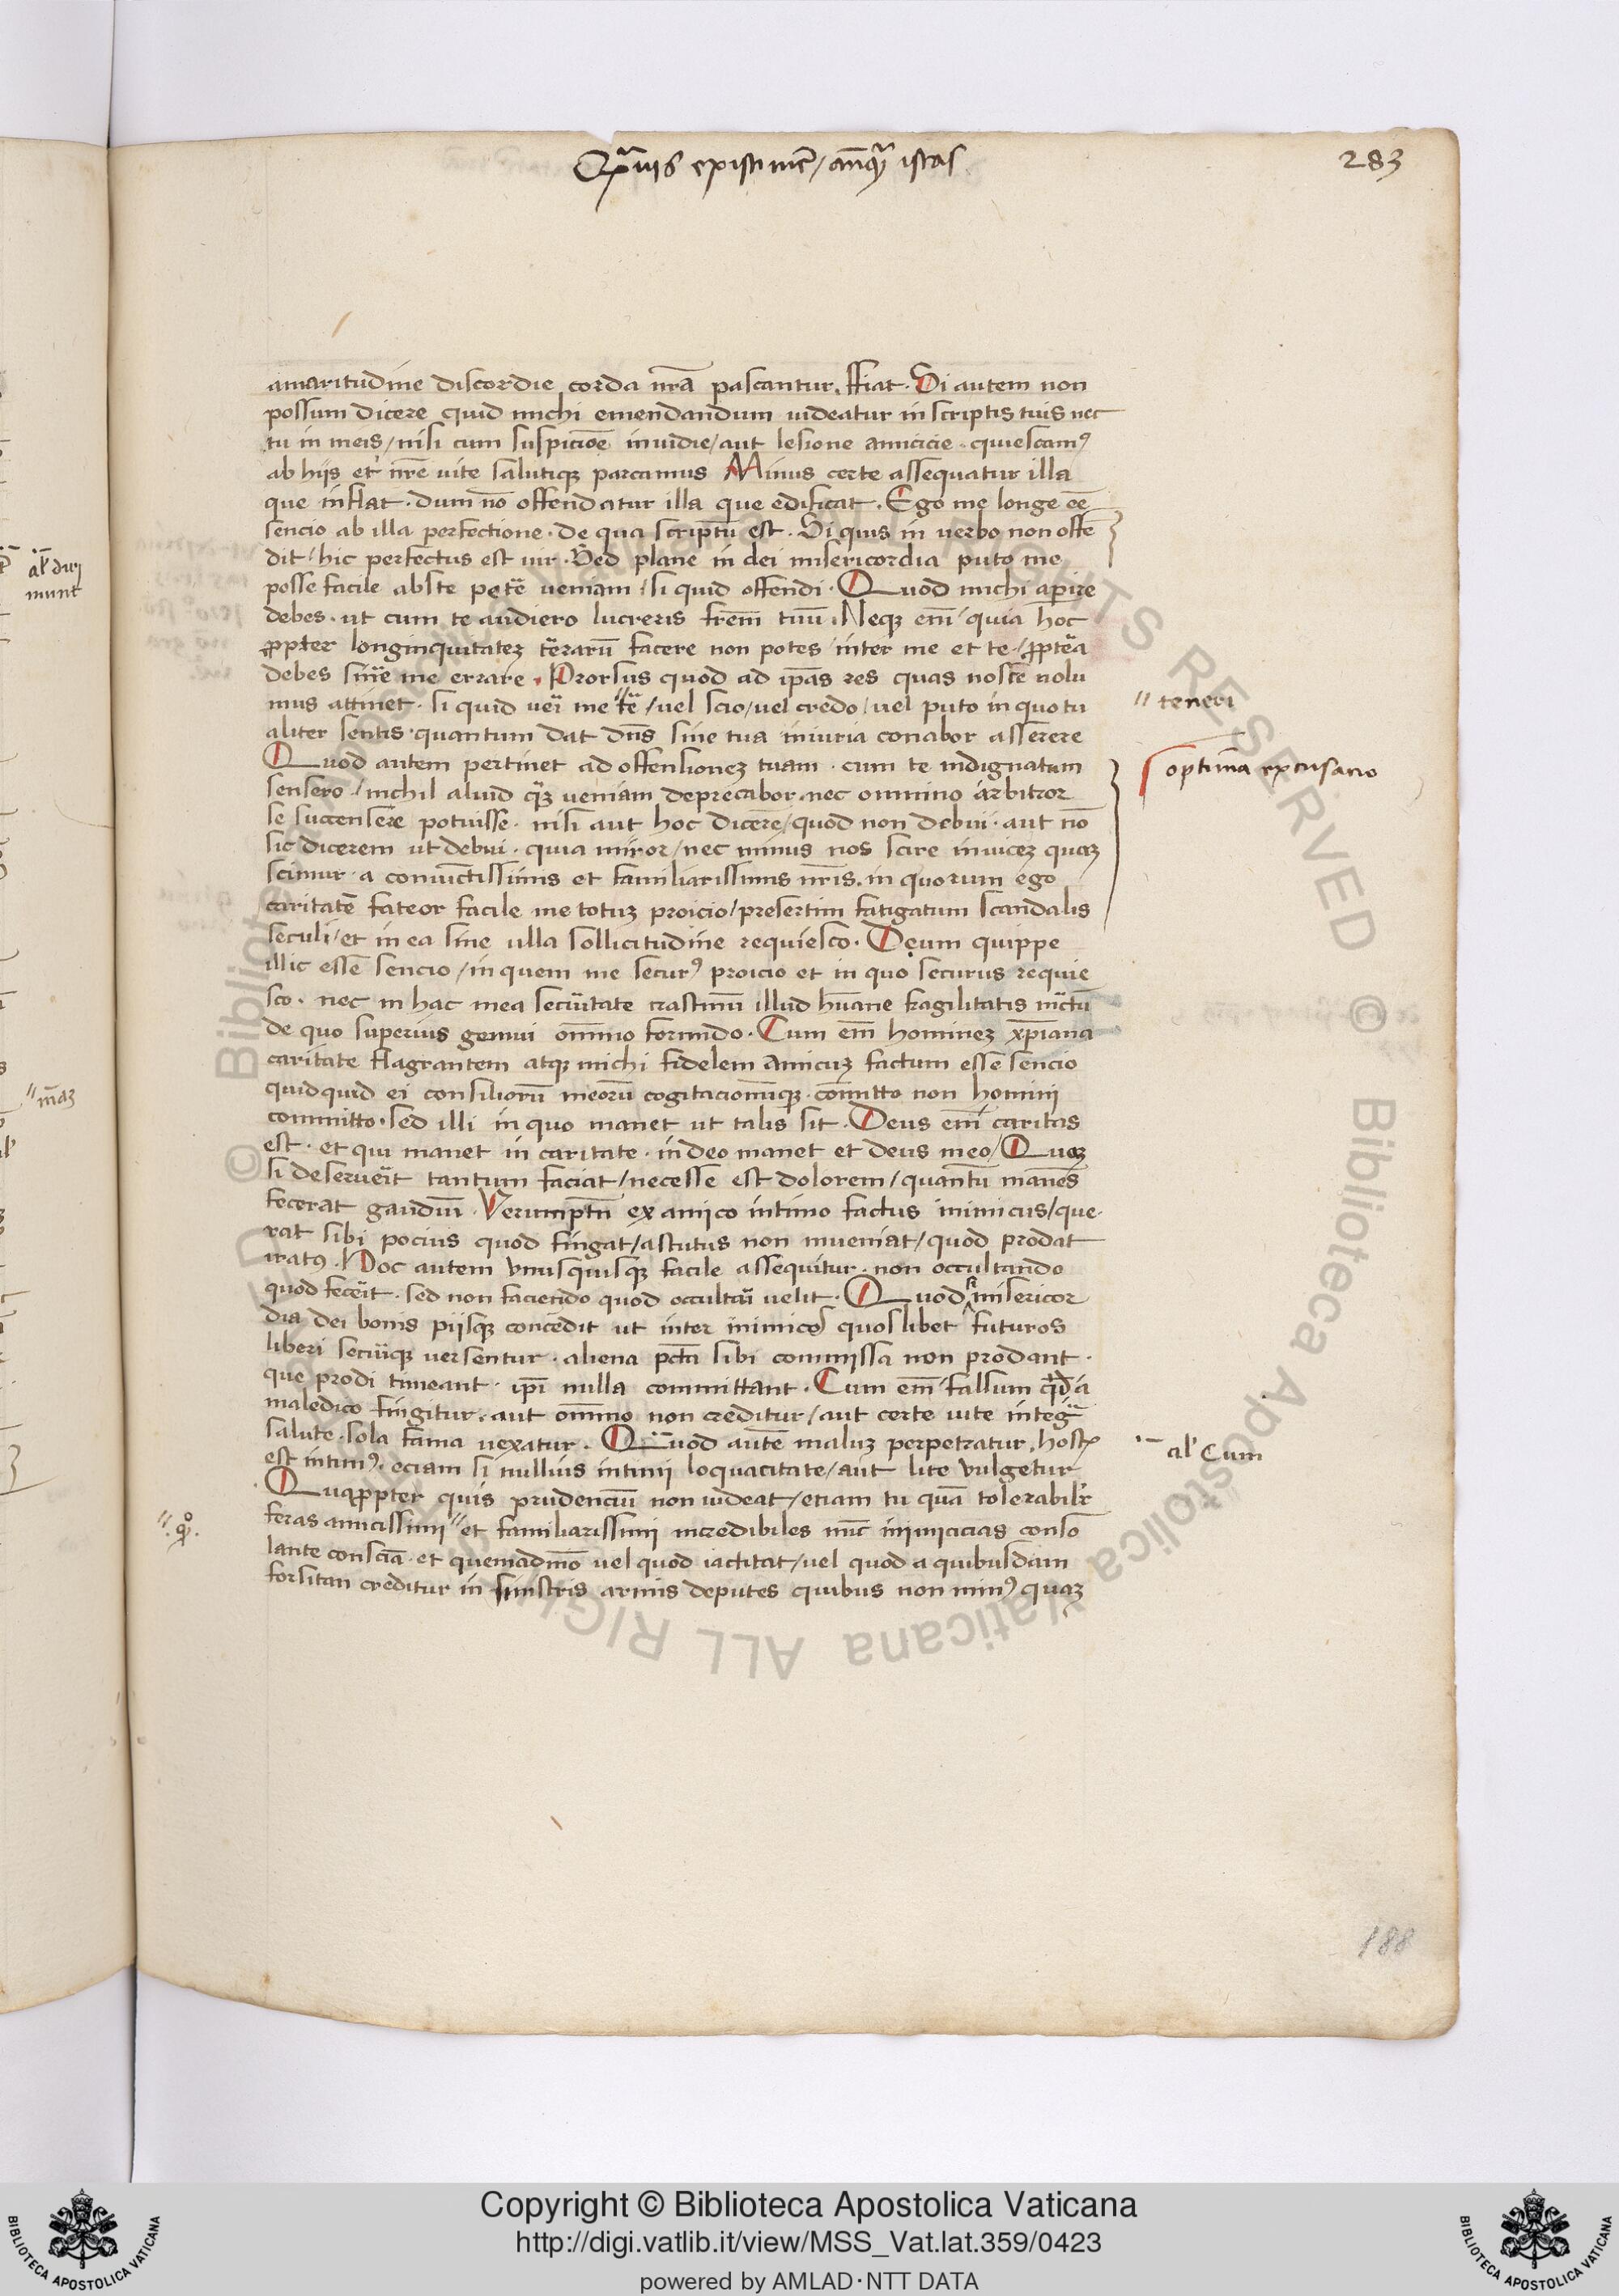 Qua̅uis existime̅t / anq̅ꝫ istas
283
amaritudine discordie corda nr̅a pascantur. ffiat. Si autem non
possum dicere quid michi emendandum uideatur in scriptis tuis nec
tu in meis / nisi cum suspicio̅e inuidie / aut lesione amicicie. quiescamꝰ
ab hijs et nr̅e uite salutiqꝫ parcamus Minus certe assequatur illa
que inflat. dum no̅ offendatur illa que edificat. Ego me longe ee̅
sencio ab illa perfectione. de qua scriptu̅ est. Si quis in uerbo non offe̅
dit / hic perfectus est uir. Sed plane in dei misericordia puto me
posse facile abs te pete̅ ueniam / si quid offendi. Quod michi aperire
debes. ut cum te audiero lucreris fr̅em tuu̅. Neqꝫ em̅ quia hoc
ꝓpter longinquitateꝫ terraru̅ facere non potes inter me et te / ꝓptea̅
debes sine̅ me errare. Prorsus quod ad ip̅as res quas nosce̅ uolu
mus attinet. si quid ueri me te̅ / uel scio / uel credo / uel puto in quo tu
aliter sentis. quantum dat dn̅s sine tua iniuria conabor asserere
Quod autem pertinet ad offensioneꝫ tuam. cum te indignatum
sensero / nichil aliud qꝫ̅ ueniam deprecabor. nec omnino arbitror
te succensere potuisse. nisi aut hoc dicere / quod non debui. aut no̅
sic dicerem ut debui. quia miror / nec minus nos scire inuiceꝫ quaꝫ
scimur a coniunctissimis et familiarissimis nr̅is. in quorum ego
caritate̅ fateor facile me totuꝫ proicio / presertim fatigatum scandalis
seculi / et in ea sine ulla sollicitudine requiesco. Deum quippe
illic esse sencio / in quem me securꝰ proicio et in quo securus requie
sco. nec in hac mea secu̅itate crastinu̅ illud hu̅ane fragilitatis inc̅tu̅
de quo superius gemui om̅ino formido. Cum em̅ homineꝫ xp̅iana
caritate flagrantem atqꝫ michi fidelem amicuꝫ factum esse sencio
quidquid ei consilioru̅ meoru̅ cogitacionu̅qꝫ co̅mitto non homini
committo. sed illi in quo manet ut talis sit. Deus em̅ caritas
est. et qui manet in caritate. in deo manet et deus in eo / Quaꝫ
si deserueit̅ tantum faciat / necesse est dolorem / quantu̅ mane̅s
fecerat gaudiu̅. Verumpt̅n ex amico intimo factus inimicus / que
rat sibi pocius quod fingat / astutus non inueniat / quod prodat
iratꝰ. Hoc autem unusquisqꝫ facile assequitur. non occultando
quod feceit̅. sed non faciendo quod occultari uelit. Quod misericor
dia dei bonis piisqꝫ concedit ut inter inimicos quoslibet futuros
liberi secu̅iqꝫ uersentur. aliena pct̅a sibi commissa non prodant.
que prodi timeant. ip̅i nulla committant. Cum em̅ falsum qd̅ a
maledico fingitur. aut om̅ino non creditur / aut certe uite integ̅
salute. sola fama uexatur. Quod aute̅ maluꝫ perpetratur, host
est intimꝰ. eciam si nullius intimi loquacitate / aut lite uulgetur
Quaꝓpter quis prudenciu̅ non uideat / etiam tu qua̅ tolerabilr̅
feras amicissimi et familiarissimi incredibiles nu̅c inimicicias conso̅
lante consci̅a. et quemadmo̅ uel quod iactitat / uel quod a quibusdam
forsitan creditur in sinistris armis deputes quibus non minꝰ quaꝫ
teneri
optima excusacio
al' Cum
al' diri
munt
188
© Biblioteca Apostolica Vaticana ALL RIGHTS RESERVED
BIBLIOTECA APOSTOLICA VATICANA
Copyright © Biblioteca Apostolica Vaticana
http://digi.vatlib.it/view/MSS_Vat.lat.359/0423
powered by AMLAD·NTT DATA
BIBLIOTECA APOSTOLICA VATICANA